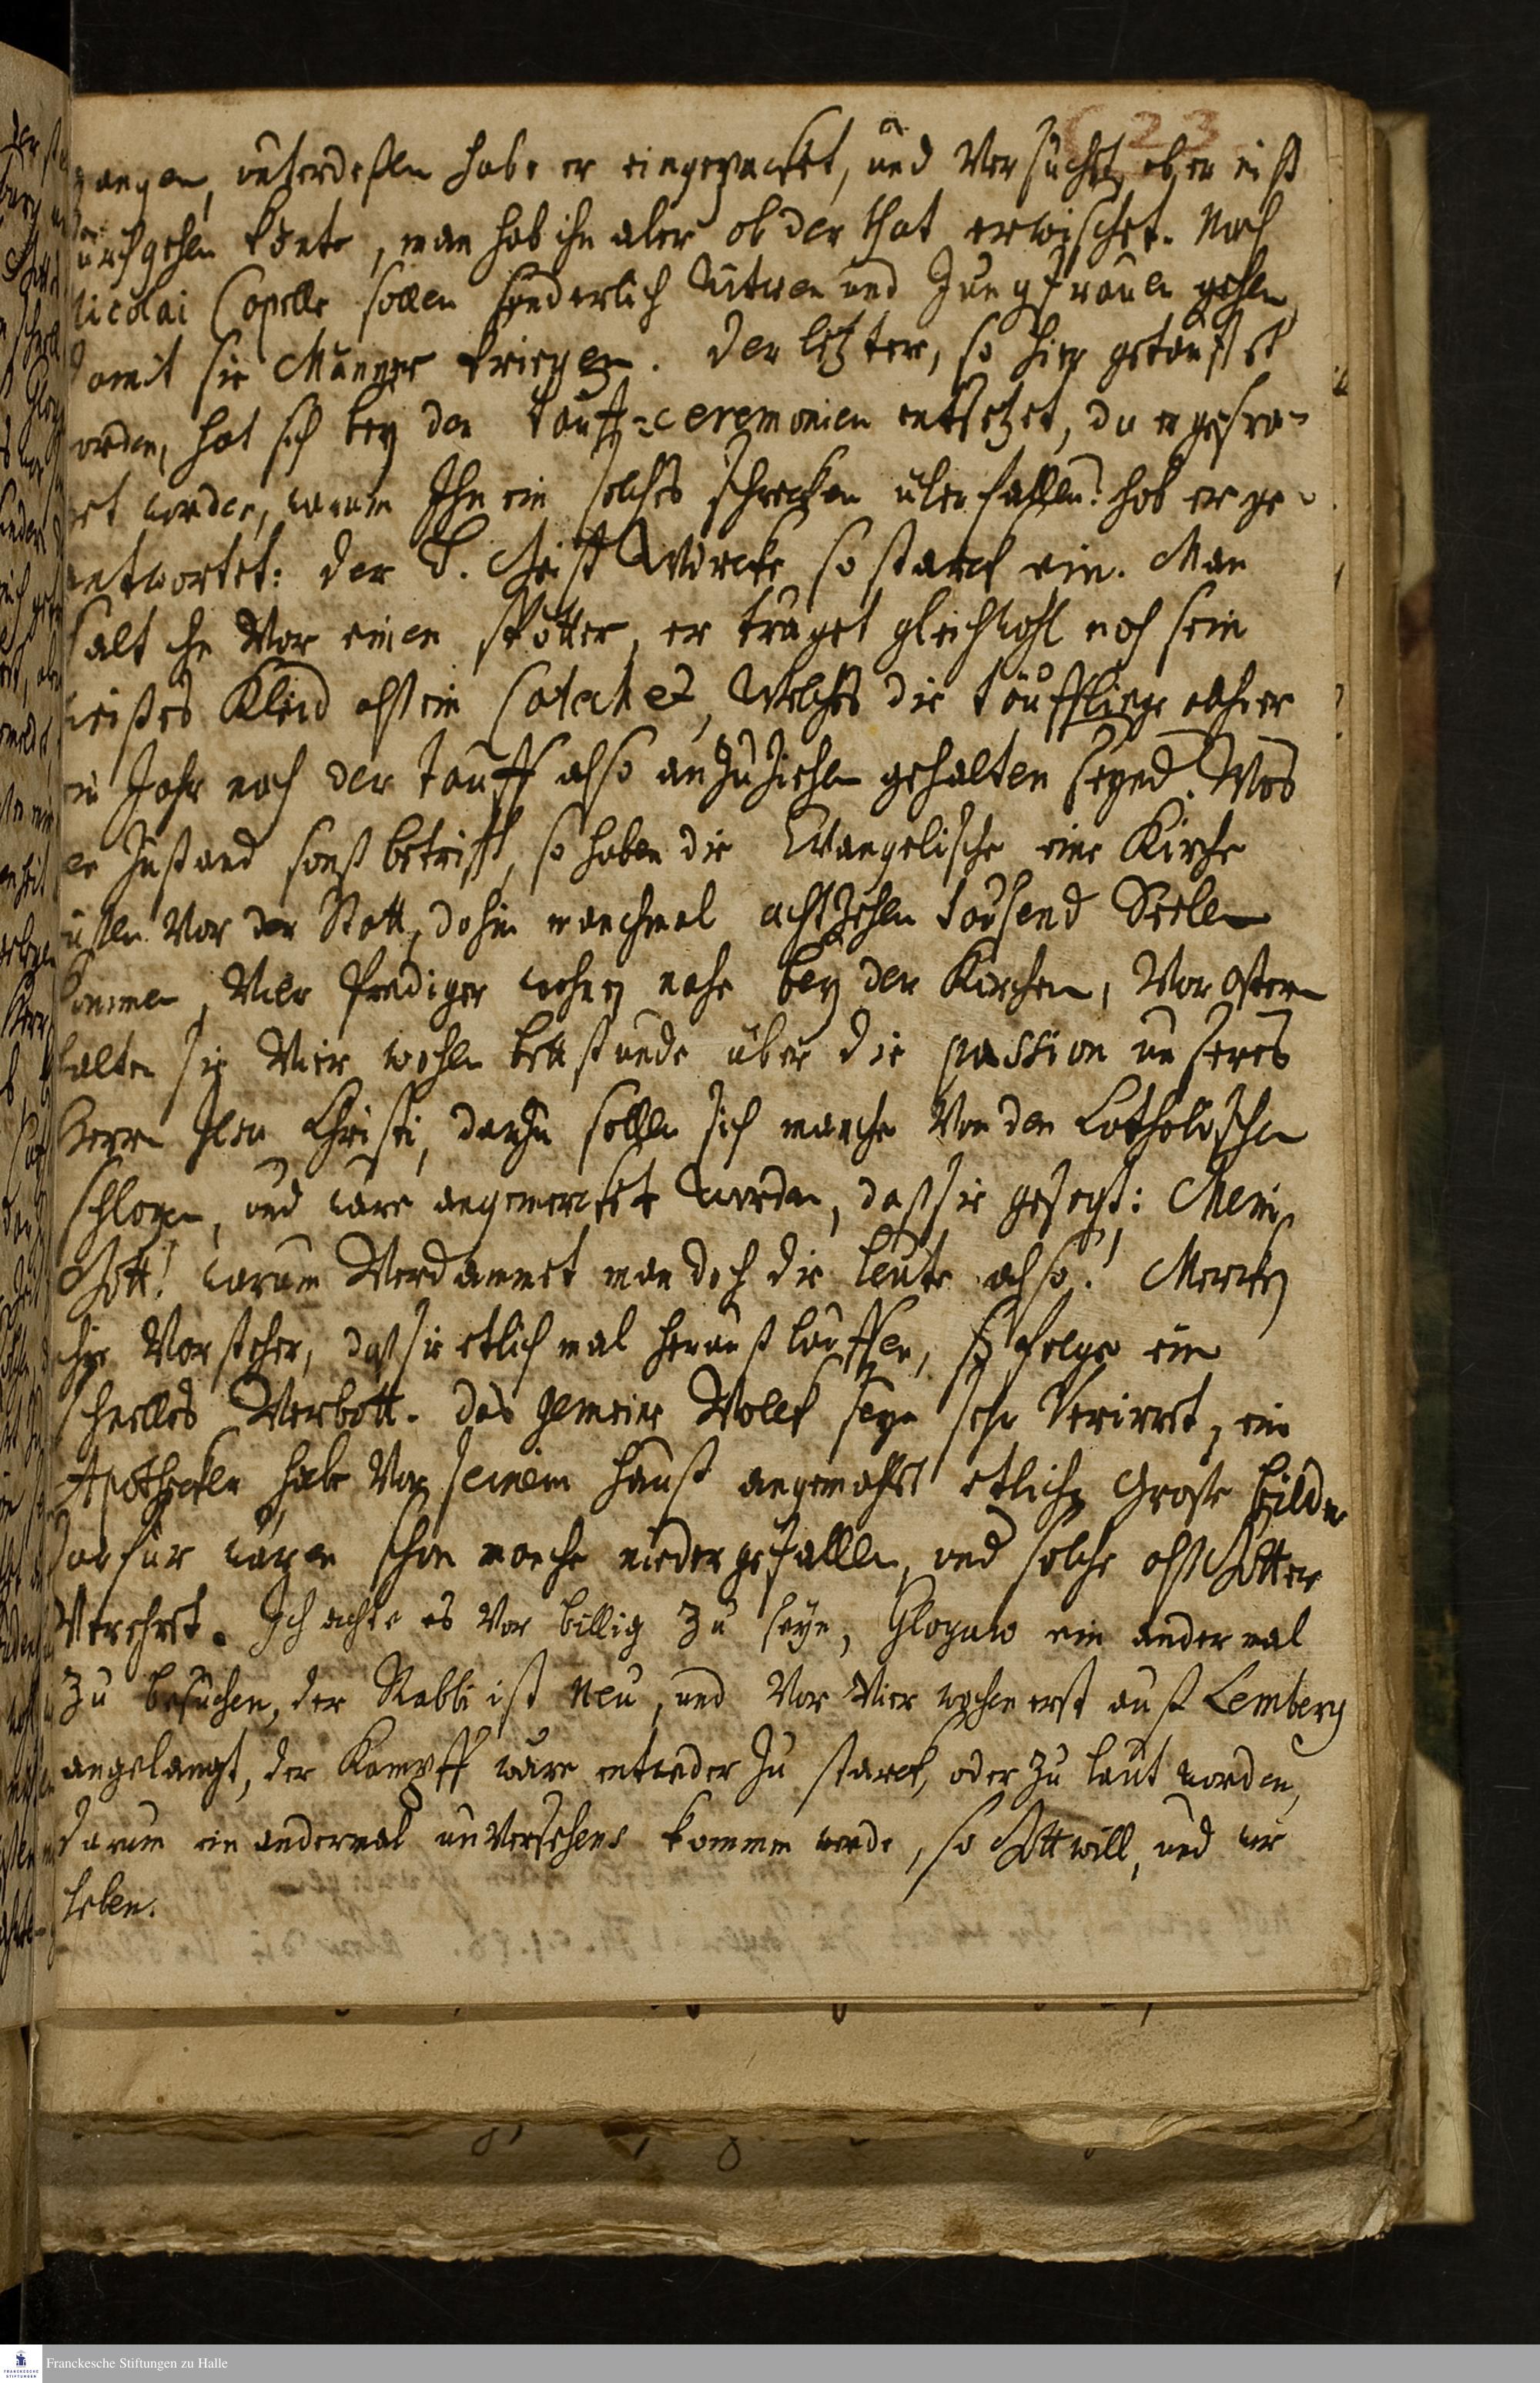 623
gangen, unterdeßen habe er eingepacket, und Versucht, ob er nicht
durchgehen könte, man hab ihn aber ob der that erwischet. Nach
Nicolai Capelle sollen sonderlich Witwen und Jungfrauen gehen,
damit sie Männer kriegen. Der letztere, so hier getaufft
worden, hat sich bey den Tauff-ceremonien entsetzet, da er gefra-
get worden, warum Ihn ein solches schrecken überfallen? hab er ge-
antwortet: der H. Geist Wircke so starck ein. Man
halt ihn Vor einen spötter, er träget gleichwohl noch sein
weißes Kleid alß ein Welches die Täufflinge alhier
ein Jahr nach der Tauff also anzuziehen gehalten seynd. Was
den Zustand sonst betrifft, so haben die Evangelische eine Kirche
außen Vor der Statt, dahin manchmal achtzehen tausend Seelen
kommen, Vier Prediger wohnen nahe bey der Kirchen, Vor Ostern
halten sie Vier wochen bettstunde über die passion unseres
Herrn Jesu Christi, darzu sollen sich manche Von den Catholischen
schlagen, und wäre angemercket worden, daß sie gesagt: Mein
Gott! warum Verdammet man doch die leute also! Mercken
ihre Vorsteher, daß sie etlich mal herauß lauffen, so folge ein
schnelles Verbott. Das gemeine Volck seye sehr Verirret, ein
Apothecker habe Vor seinem Hauß angemahlt etliche Große bilder
darfür wären schon manche niedergefallen, und solche alß Götter
Verehret. Ich achte es Vor billig zu seyn, Glogaw ein andermal
zu besuchen, der Rabbi ist Neu, und Vor Vier wochen erst auß Lemberg
angelangt, der Kampff wäre entweder zu starck, oder zu laut worden,
darum ein andermal unversehens kommen werde, so Gott will, und wir
leben.
Franckesche Stiftungen zu Halle